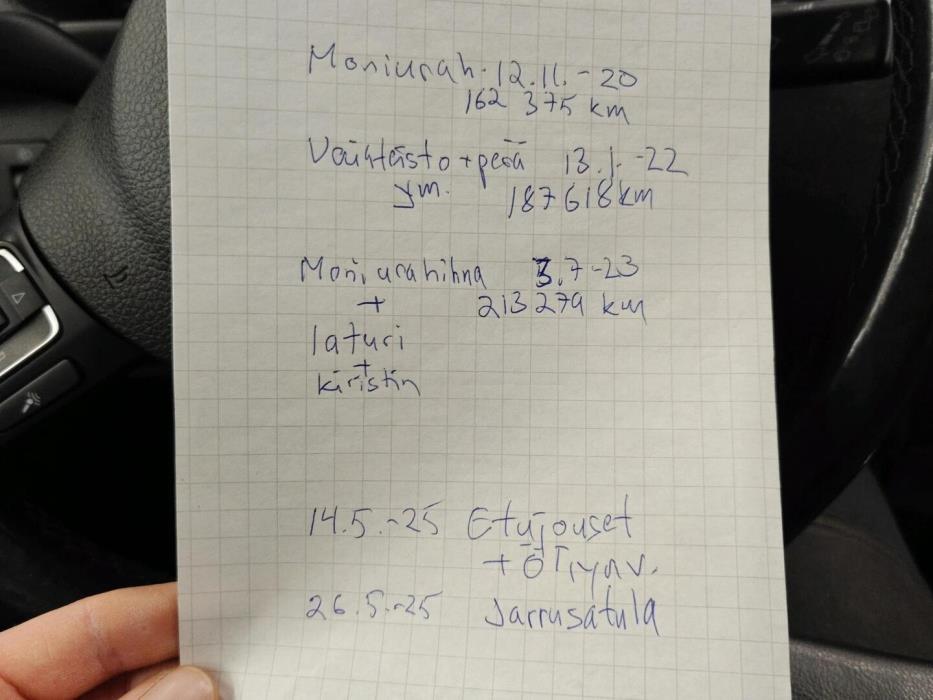 Moniurah. 12.11.-20
162 375 km
Vaihteisto + perä 13.1.-22
ym. 187618 km
Moniurahihna 3.7-23
+ 213279 km
laturi
+
kiristin
14.5.-25 Etujouset
+
26.5.-25 Jarrusatula